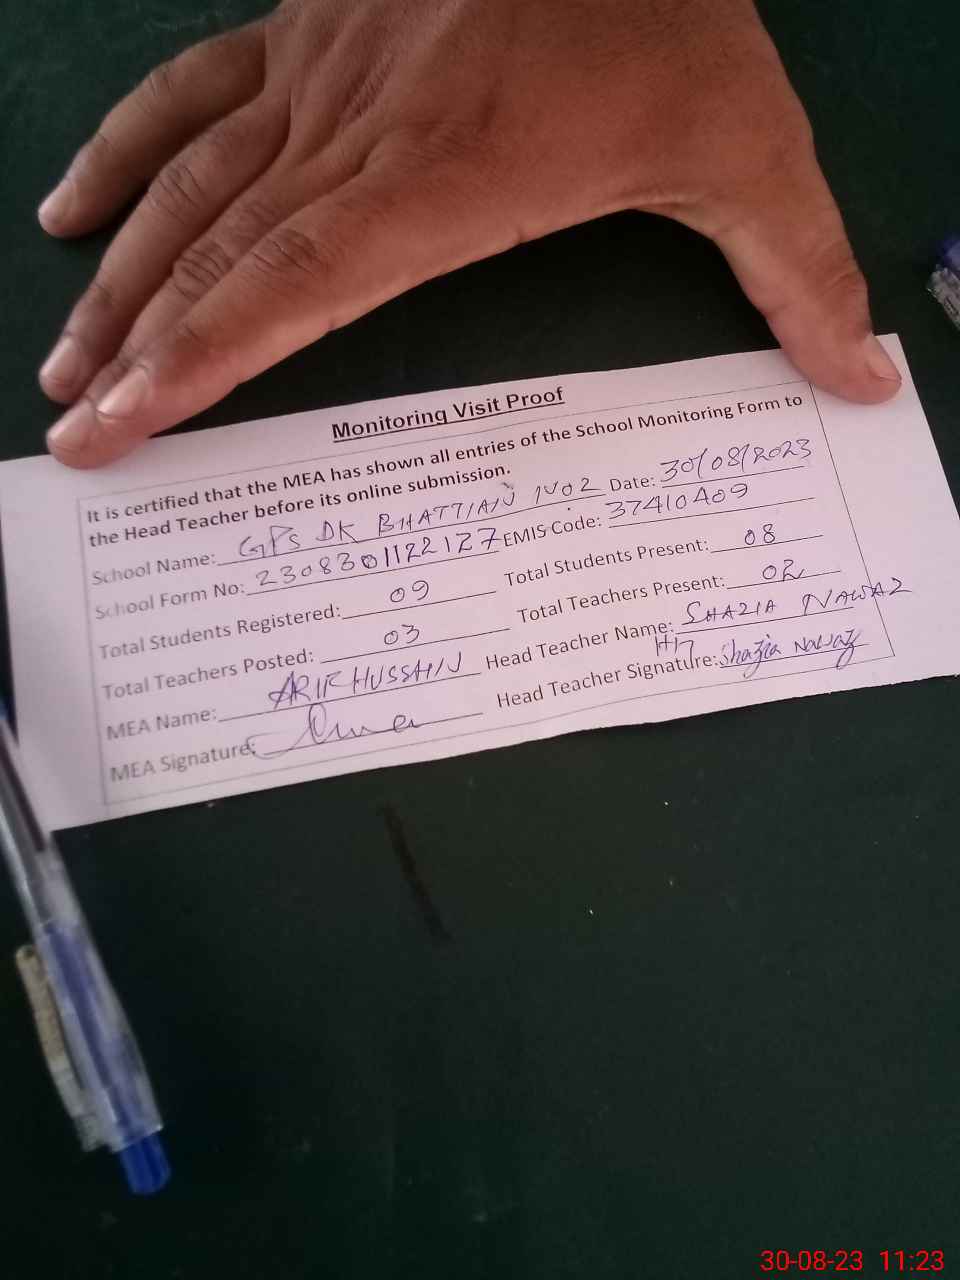 Monitoring Visit Proof
It is certified that the MEA has shown all entries of the School Monitoring Form to
the Head Teacher before its online submission.
School Name: GPS DK BHATTIAN NO2 Date: 30/08/2023
School Form No: 230830112 2127 EMIS Code: 37410409
Total Students Registered: 09 Total Students Present: 08
Total Teachers Posted: 03 Total Teachers Present: 02
MEA Name: ARIF HUSSAIN Head Teacher Name: SHAZIA NAWAZ
MEA Signature: Head Teacher Signature: Shazia Nawaz
30-08-23 11:23